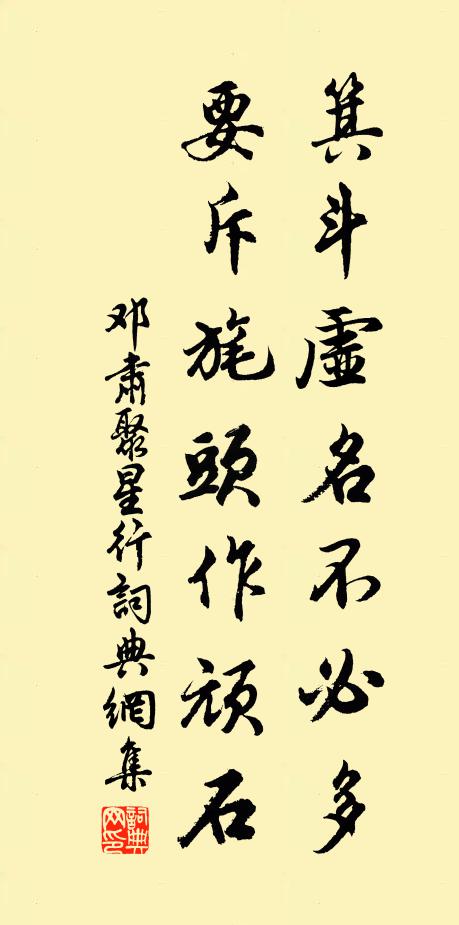 箕斗虛名不必多
要斥旄頭作頑石
邓肅聚星行詞典網集
詞典網印